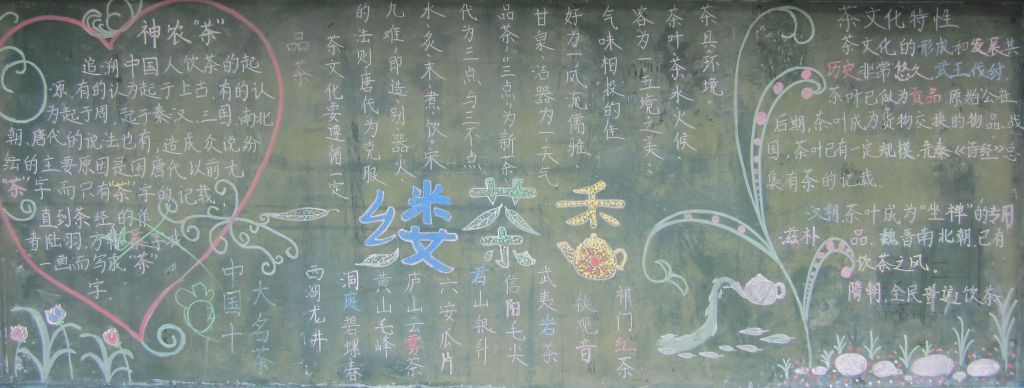 神农“茶”
追溯中国人饮茶的起
源,有的认为起于上古,有的认
为起于周,起于秦汉、三国、南北
朝、唐代的说法也有,造成众说纷
纭的主要原因是因唐代以前无
“茶”字,而只有“荼”字的记载,
直到茶经的作
者陆羽,方将“荼”字减
一画而写成“茶”
字。
品茶
茶文化要遵循一定
的法则唐代为克服
九难,即造、别、器、火、
水、炙、末、煮、饮。宋
代为三点与三不点
品茶,“三点”为新茶、
甘泉、洁器为一,天气
好为一,风流儒雅、
气味相投的佳
客为一(环境之美:
茶叶、茶水、火候、
茶具、环境。
一缕茶香
中国十
大名茶
西湖龙井
洞庭碧螺春
黄山毛峰
庐山云雾茶
六安瓜片
君山银针
信阳毛尖
武夷岩茶
铁观音
祁门红茶
茶文化特性
茶文化的形成和发展其
历史非常悠久,武王伐纣,
茶叶已做为贡品。原始公社
后期,茶叶成为货物交换的物品。战
国,茶叶已有一定规模,先秦《诗经》总
集有茶的记载。
汉朝,茶叶成为“坐禅”的专用
滋补品。魏晋南北朝,已有
饮茶之风。
隋朝,全民普遍饮茶